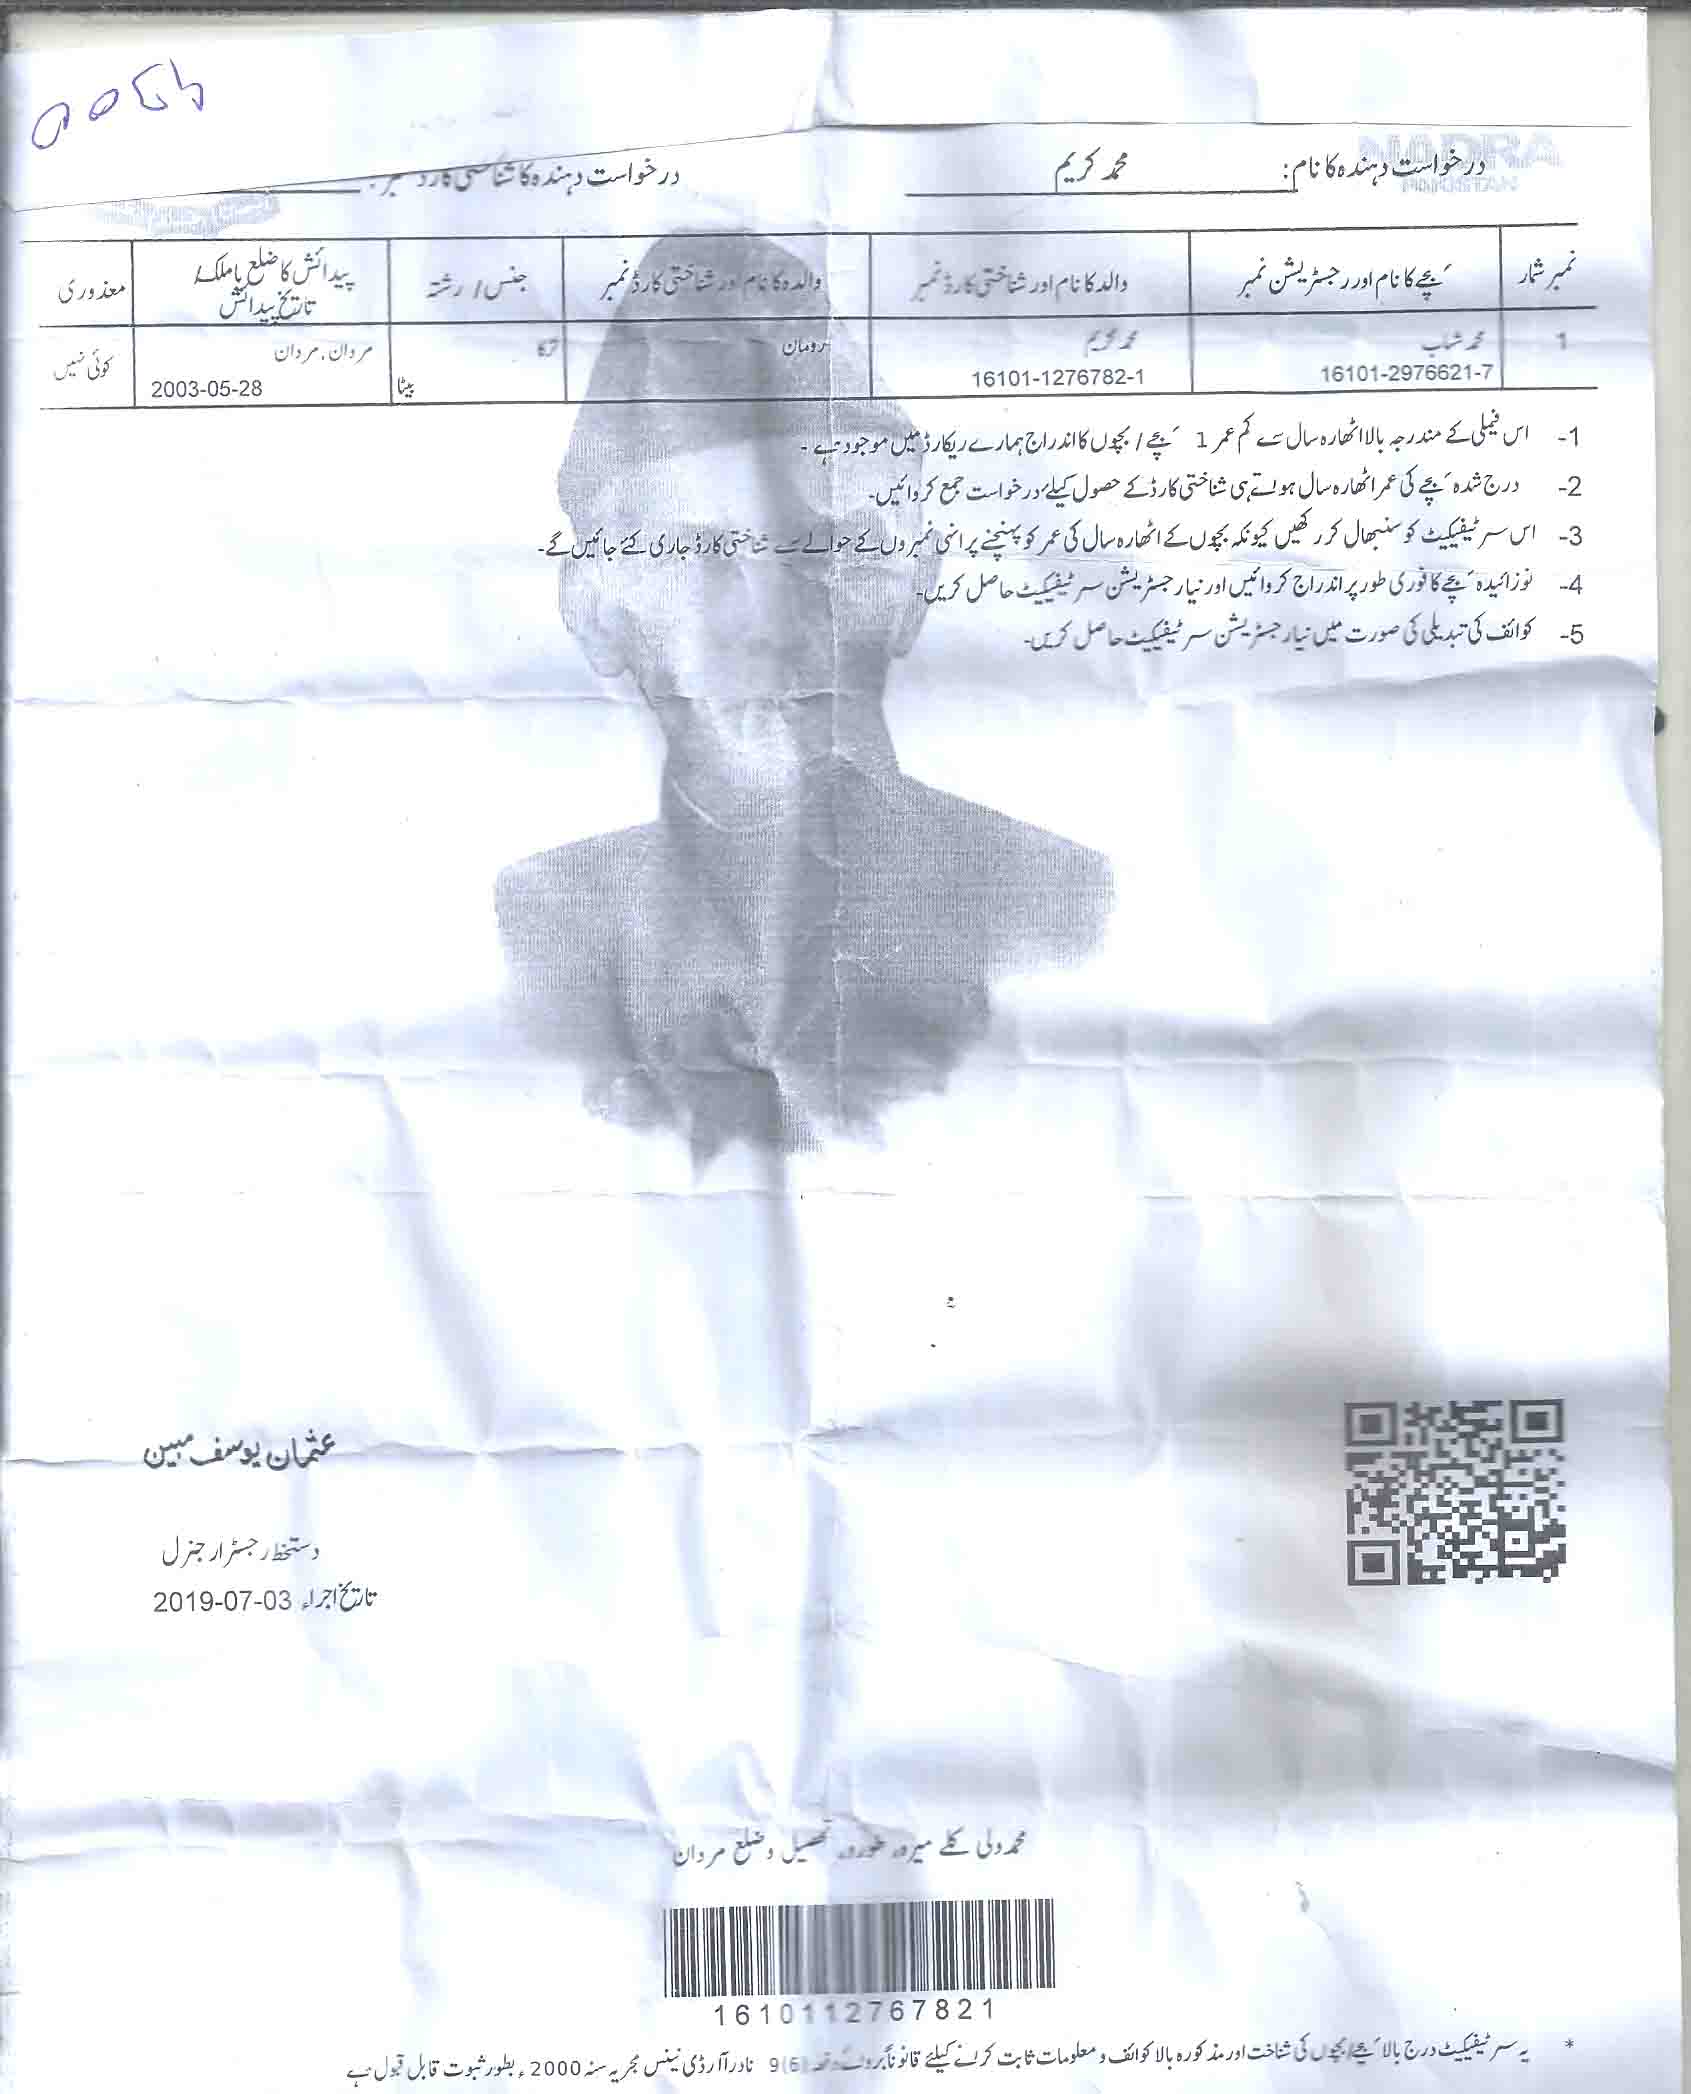 NADRA
درخواست دہندہ کا نام: محمد کریم
درخواست دہندہ کا شناختی کارڈ نمبر:
نمبر شمار
بچے کا نام اور رجسٹریشن نمبر
والد کا نام اور شناختی کارڈ نمبر
والدہ کا نام اور شناختی کارڈ نمبر
جنس / رشتہ
پیدائش کا ضلع یا ملک /
تاریخ پیدائش
معذوری
1
محمد شہاب
16101-2976621-7
محمد کریم
16101-1276782-1
رومان
لڑکا
بیٹا
مردان، مردان
2003-05-28
کوئی نہیں
1- اس فیملی کے مندرجہ بالا اٹھارہ سال سے کم عمر 1 بچے / بچوں کا اندراج ہمارے ریکارڈ میں موجود ہے۔
2- درج شدہ بچے کی عمر اٹھارہ سال ہوتے ہی شناختی کارڈ کے حصول کیلئے درخواست جمع کروائیں۔
3- اس سرٹیفیکیٹ کو سنبھال کر رکھیں کیونکہ بچوں کے اٹھارہ سال کی عمر کو پہنچنے پر انہی نمبروں کے حوالے سے شناختی کارڈ جاری کئے جائیں گے۔
4- نوزائیدہ بچے کا فوری طور پر اندراج کروائیں اور نیا رجسٹریشن سرٹیفیکیٹ حاصل کریں۔
5- کوائف کی تبدیلی کی صورت میں نیا رجسٹریشن سرٹیفیکیٹ حاصل کریں۔
عثمان یوسف مبین
دستخط رجسٹرار جنرل
تاریخ اجراء 2019-07-03
محمد ولی کلے میرہ، تحصیل و ضلع مردان
1610112767821
* یہ سرٹیفیکیٹ درج بالا بچے/بچوں کی شناخت اور مذکورہ بالا کوائف و معلومات ثابت کرنے کیلئے قانوناً بروئے دفعہ 9(6) نادرا آرڈی نینس مجریہ سنہ 2000ء بطور ثبوت قابل قبول ہے